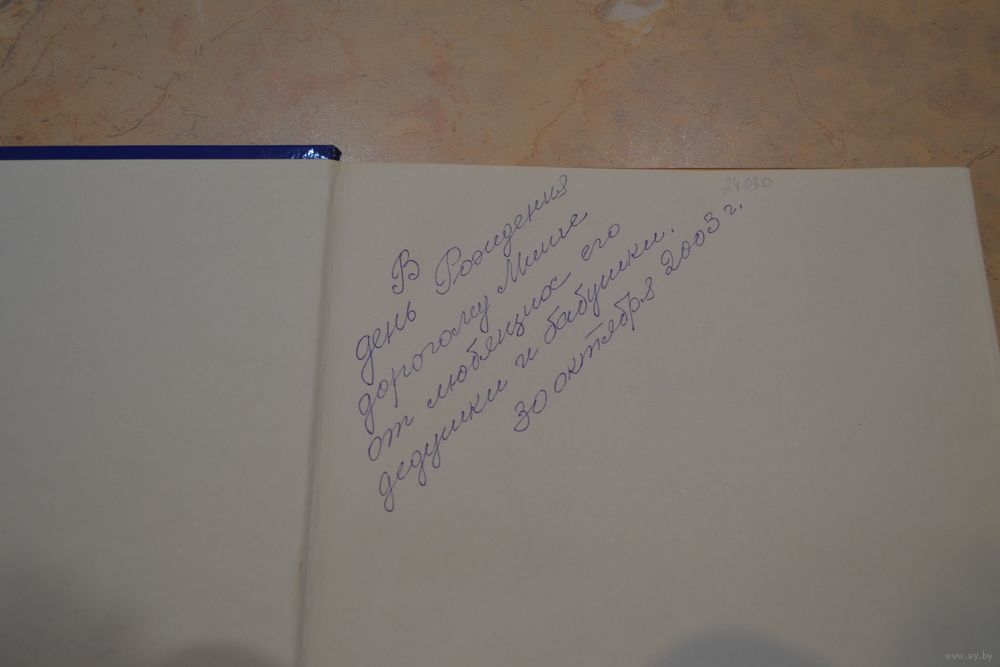 24030
В
день Рождения
дорогому Мише
от любящих его
дедушки и бабушки.
30 октября 2003 г.
www.ay.by